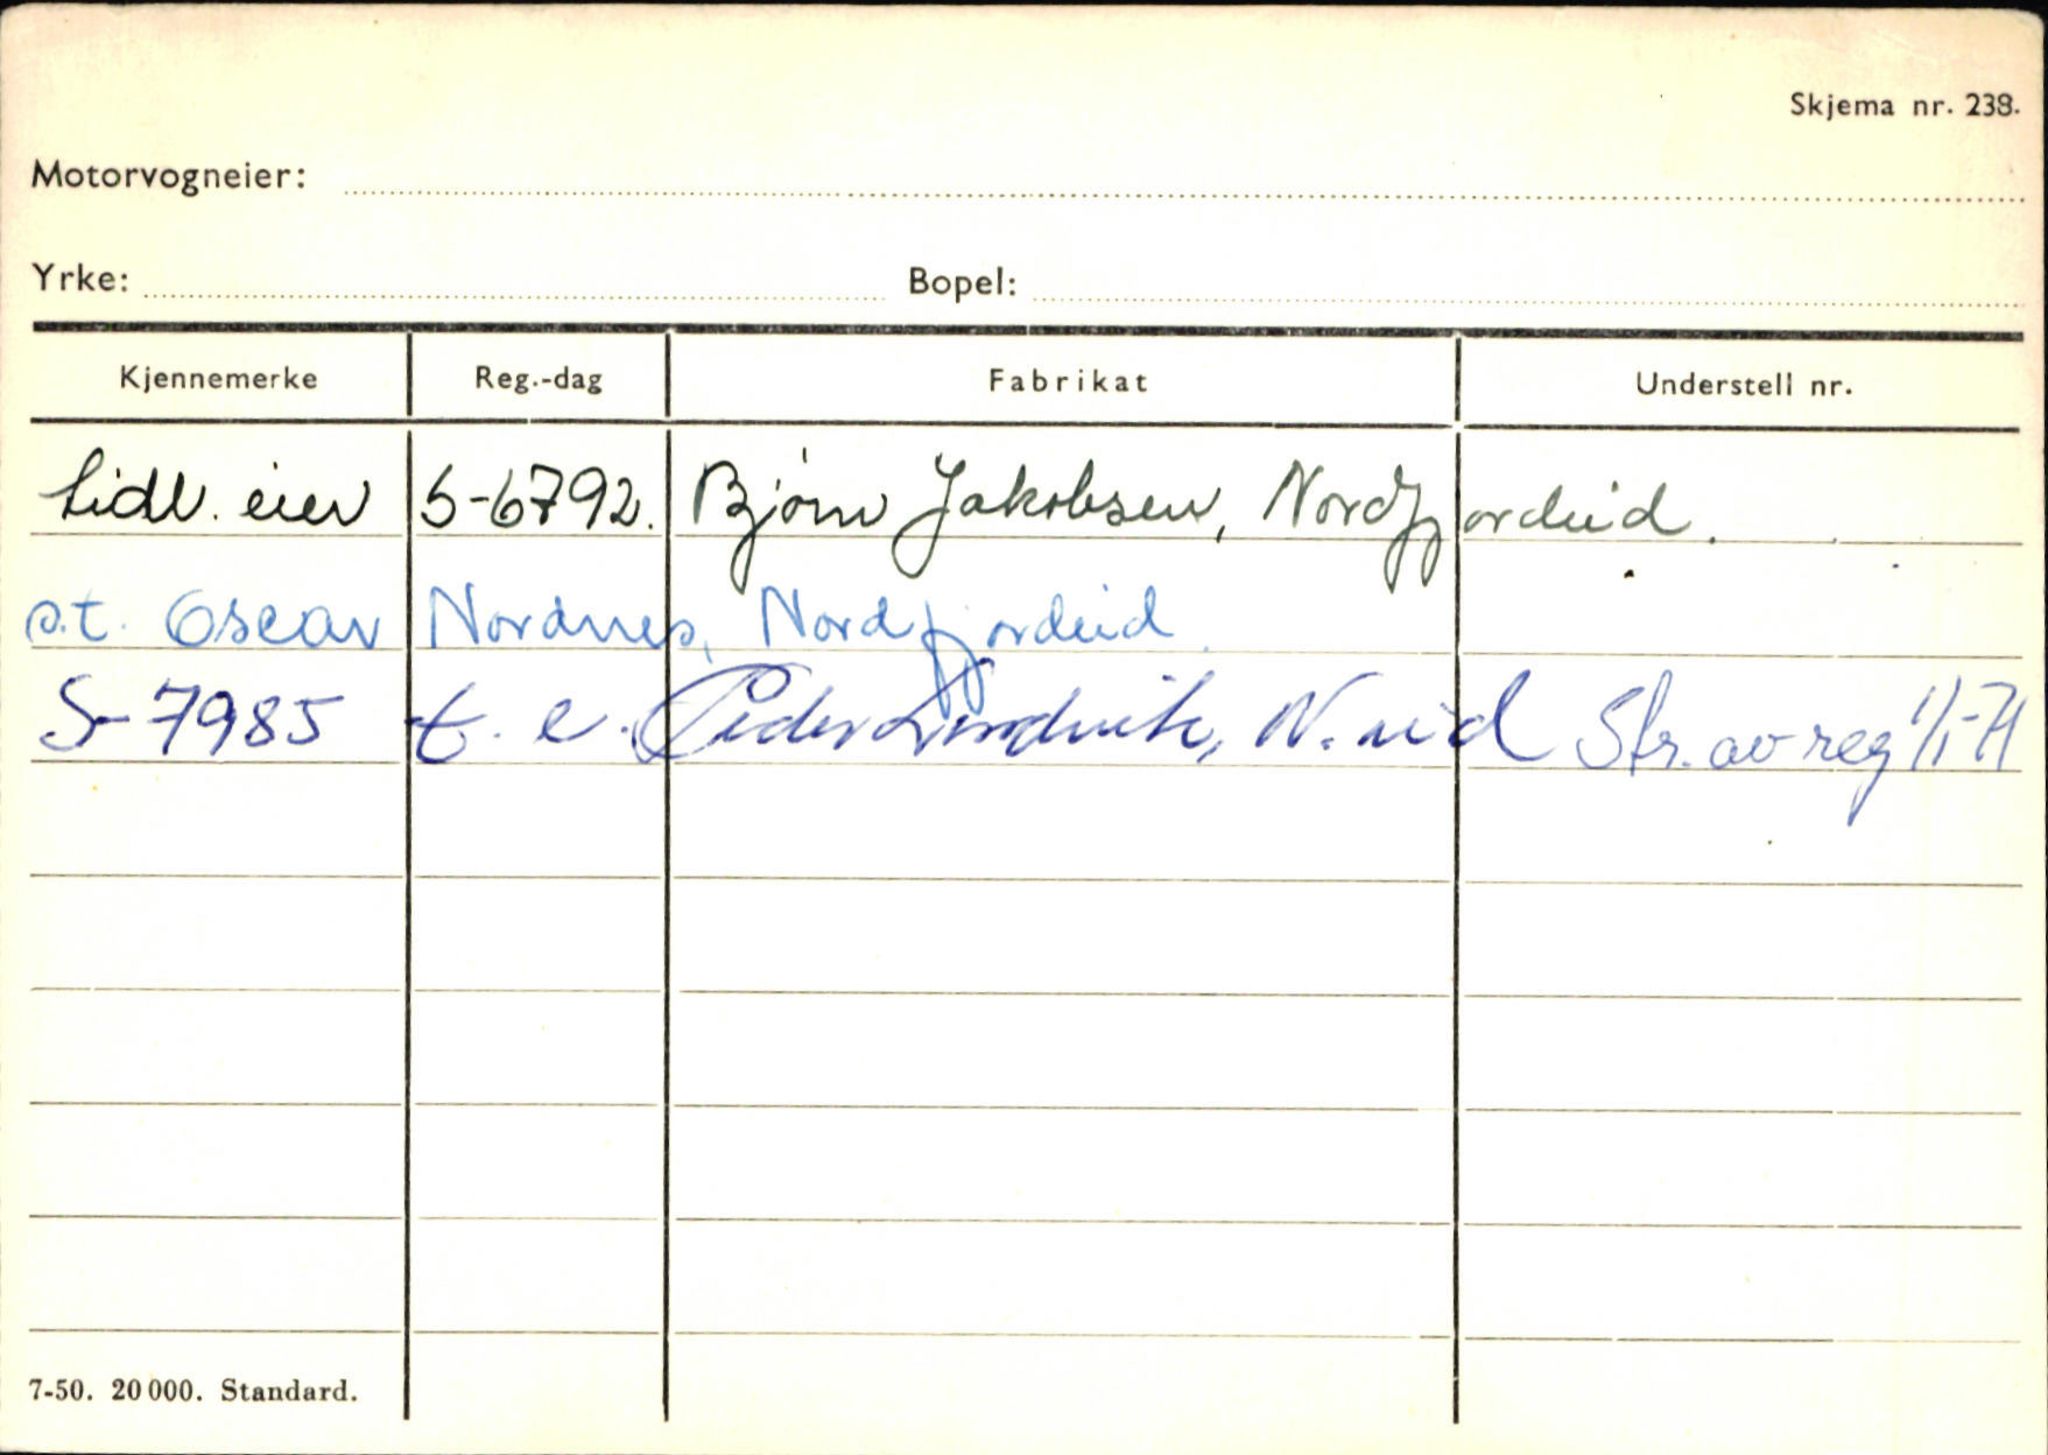 Skjema nr. 238.
Motorvogneier:
Yrke: Bopel:
Kjennemerke Reg.-dag Fabrikat Understell nr.
tidl. eier S-6792. Bjørn Jakobsen, Nordfjordeid.
s.t. Oscar Nordnes, Nordfjordeid
S-7985 t. e. Peder N. eid Str. av reg 1/1-71
7-50. 20 000. Standard.